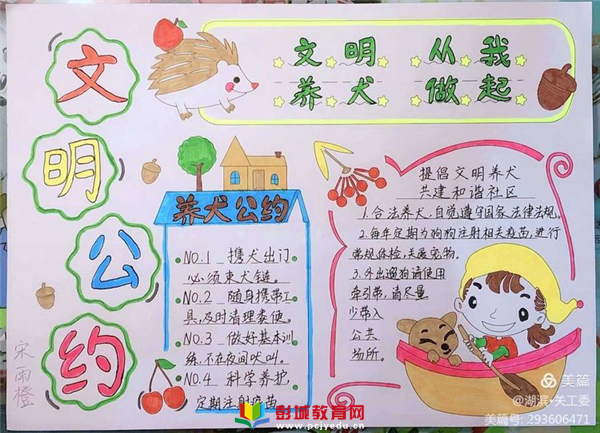 文明 从我
养犬 做起
文
明
公
约
养犬公约
NO.1 携犬出门
必须束犬链。
NO.2 随身携带工
具,及时清理粪便。
NO.3 做好基本训
练,不在夜间吠叫。
NO.4 科学养护,
定期注射疫苗
提倡文明养犬
共建和谐社区
1.合法养犬,自觉遵守国家法律法规
2.每年定期为狗狗注射相关疫苗,进行
常规体检,关爱宠物。
3.外出遛狗请使用
牵引带,请尽量
少带入
公共
场所。
宋雨橙
彭城教育网
www.pcjyedu.cn
美篇
@湖滨·关工委
美篇号: 293606471